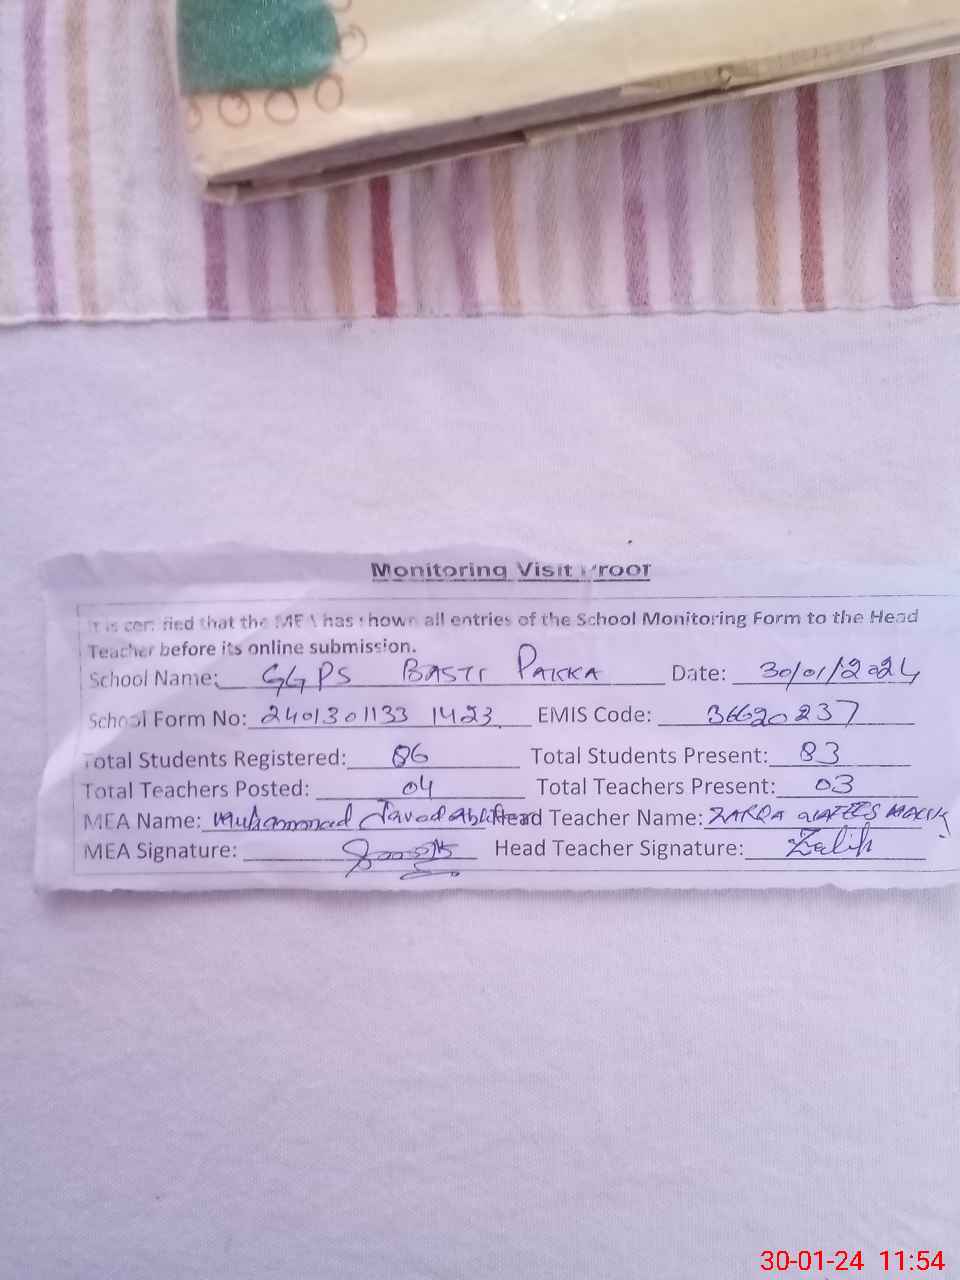 Monitoring Visit Proof
It is certified that the MEA has shown all entries of the School Monitoring Form to the Head
Teacher before its online submission.
School Name: GGPS BASTI PAKKA Date: 30/01/2024
School Form No: 2401301133 1423 EMIS Code: 36620237
Total Students Registered: 86 Total Students Present: 83
Total Teachers Posted: 04 Total Teachers Present: 03
MEA Name: Muhammad Javed Head Teacher Name: NAFEES MALIK
MEA Signature: Head Teacher Signature:
30-01-24 11:54